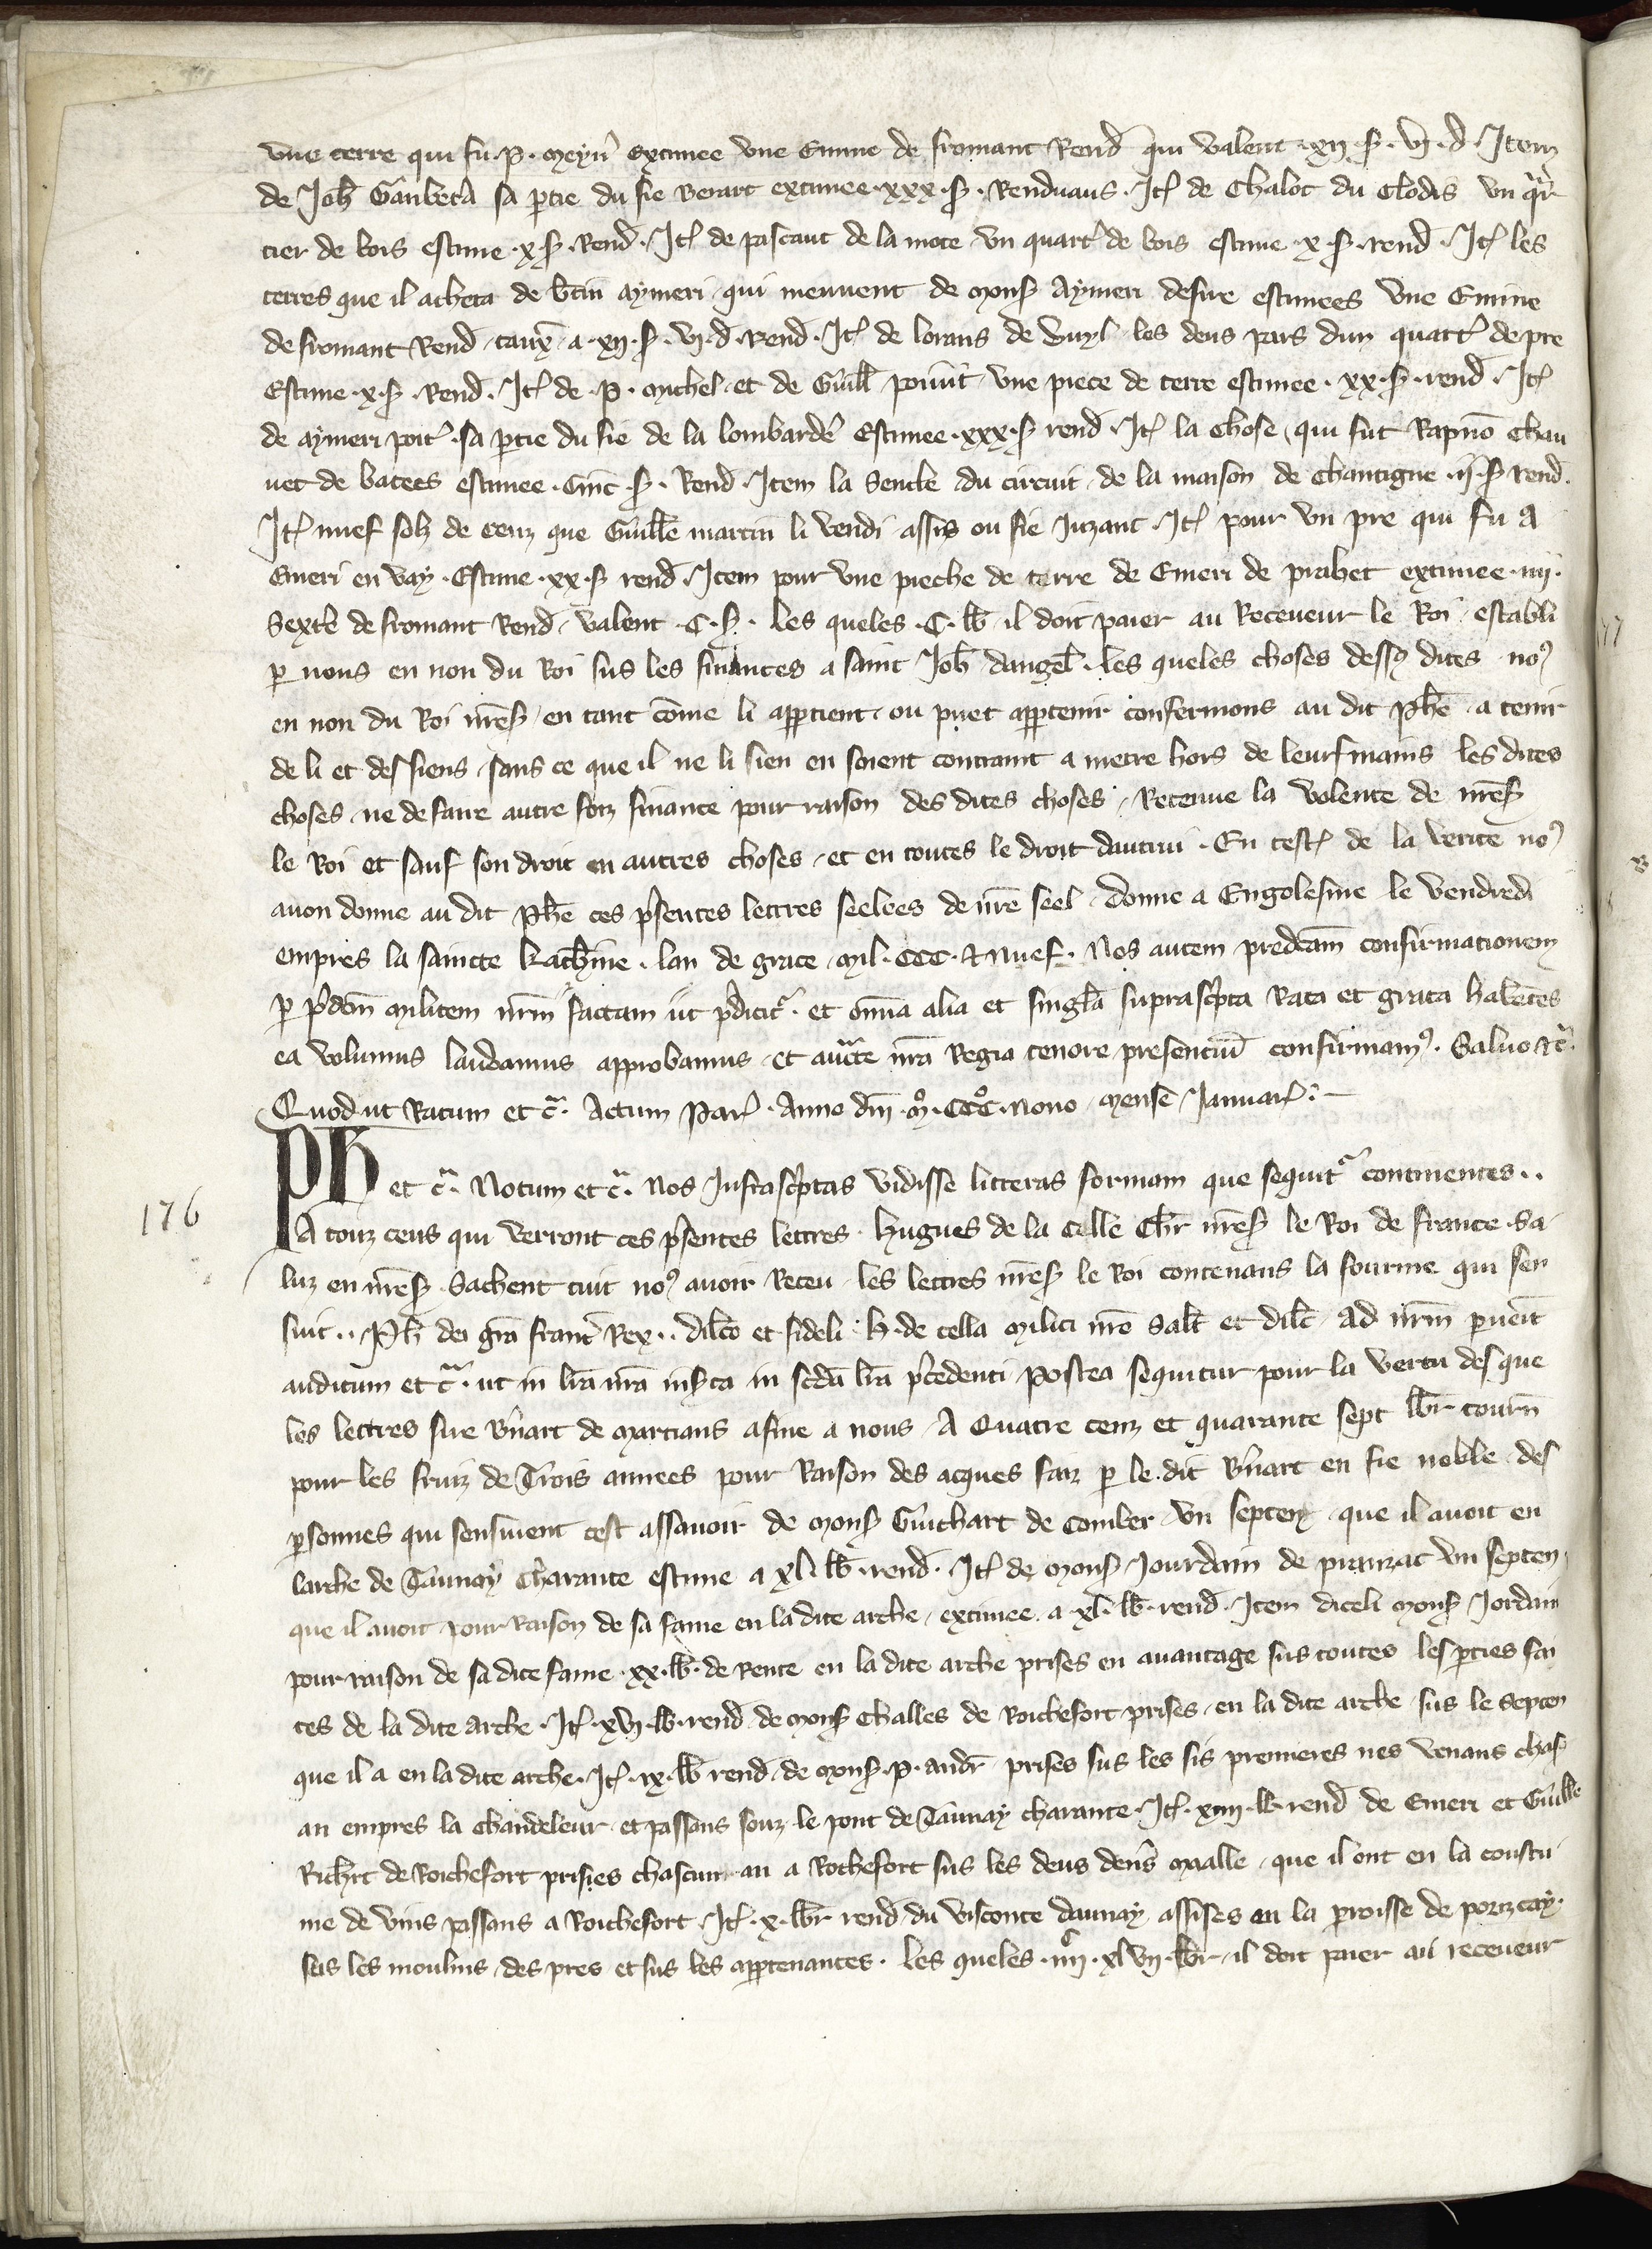 une terre qui fu .P. Meyn̄ extimee une Emine de fromant Rend̄ qui valent .xij. s̄ . vj. d̄ Item
de Joh̄ Ganbeta sa p̱tie du fie Berart extimee .xxx. s̄ . Rendvans . Itē de Chalot du Clodis un qr̄
tier de bois estime .x. s̄ . Rend̄ . Itē de pascaut de la mote un quart̄ de bois estime .x. s̄ . rend̄ . Itē les
terres que il acheta de b̄tin aymeri qui meuvent de Mons̄ Aymeri desire estimees une Emine
de fromant Rend̄ taux̄ a .xij. s̄ . vj. d̄ . Rend̄ . Itē de lorans de les deus pars dun quart̄ de pre
Estime .x. s̄ . Rend̄ . Itē de .P. Michel et de Guill̄ une piece de terre estimee .xx. s̄ . rend̄ . Itē
de aymeri poit̄ . sa p̱tie du fie de la lombarder̄ Estimee .xxx. s̄ rend̄ . Itē la chose qui fut Rapnō Chau
vet de batees estimee . Cinc . s̄ . Rend̄ . Item la Sencle du circuit de la maison de Chantigne .ij. s̄ rend̄ .
Itē nuef solz de cenz que Guill̄e martin li vendi assis ou fie Juzant . Itē pour un pre qui fu A
Emeri en vay . Estime .xx. s̄ rend̄ . Item pour une pieche de terre de Emeri de prahet extimee .iiij.
Sext̄ de fromant Rend̄ valent .C. s̄ . les queles .C. lb̄ il doit paier au Receveur le Roi establi
p̱ nous en non du Roi sus les finances a saint Joh̄ dangel̄ . les queles choses dess9 dites no9
en non du Roi nr̄es̄ en tant cōme li app̱tient ou puet app̱tenir confermons au dit Ph̄e a tenir
de li et des siens sans ce que il ne li sien en soient contraint a metre hors de leurs mains les dites
choses ne de faire autre foiz finance pour raison des dites choses . Retenue la volente de nr̄es̄
le Roi et sauf son droit en autres choses et en toutes le droit dautrui . En test̄ de la verite no9
avon donne au dit Ph̄e ces p̄sentes lettres seelees de nr̄e seel . donne a Engolesme le vendredi
empres la saincte Kath̄ine . lan de grace mil . CCC . & Nuef . Nos autem predc̄am confirmationem
p̱ p̄dc̄m militem nr̄m factam ut p̄dicit̄ . et om̄ia alia et singl̄a suprasc̄pta Rata et grata habentes
ea volumus laudamus approbamus et auct̄e nr̄a Regia tenore presentiū confirmam9 . Salvo & c̄ .
Quod ut Ratum et c̄ . Actum Par̄ . Anno dn̄i . Mº . CCCº . Nono . Mense Januar̄ .
Ph̄ et c̄ . Notum et c̄ . Nos Infrasc̄ptas vidisse litteras formam que sequit̄ continentes ..
A touz ceus qui verront ces p̄sentes lettres . Hugues de la Celle Chr̄ nr̄es̄ le Roi de france . Sa
luz en nr̄es̄ . Sachent tuit no9 avoir Receu les lettres nr̄es̄ le Roi contenans la fourme qui sen
suit .. Ph̄ dei grā franc̄ Rex .. dilc̄o et fideli H. de cella Militi nr̄o Salt̄ et dilc̄ . Ad nr̄m p̱venit
auditum et c̄ . ut in lr̄a nr̄a ins̱ta in sc̄da lr̄a p̄cedenti . Postea sequitur pour la vertu des que
les lettres sire B̄nart de Martians a fine a nous . A Quatre cenz et quarante sept lb̄r tourn̄
pour les fruiz de Trois annees pour Raison des acques faiz p̱ le dit B̄nart en fie noble des
p̱sonnes qui sensuient cest assavoir de Mons̄ Guichart de Comber un septen . que il avoit en
larche de Taunay Charante estime a xl. lb̄ . rend̄ . Itē de Mons̄ Jourdain de pranzac un septen
que il avoit pour Raison de sa fame en la dite arche extimee a .xl. lb̄ . rend̄ . Item diceli Mons̄ Jordain
pour raison de sa dite fame .xx. lb̄ . de Rente en la dite arche prises en avantage sus toutes les p̱ties fai
tes de la dite arche . Itē .xvj. lb̄ . rend̄ de Mons̄ Challes de Roichefort prises en la dite arche sus le septen
que il a en la dite arche . Itē .ix. lb̄ rend̄ de Mons̄ .P. andr̄ prises sus les sis premieres nes venans chas
an empres la chandeleur et passans souz le pont de Taunay charante . Itē .xiiij. lb̄ . rend̄ de Emeri et Guill̄e
Rich̄rt de Roichefort prisies chascun an a Rochefort sus les deus den̄s maalle que il ont en la coustu
me de vins passans a Roichefort . Itē .x. lb̄r rend̄ du visconte daunay assises en la p̱roisse de porzcay
sus les moulins des pres et sus les app̱tenances . les queles .iiijᶜ . xlvij. lb̄r il doit paier au receveur
176